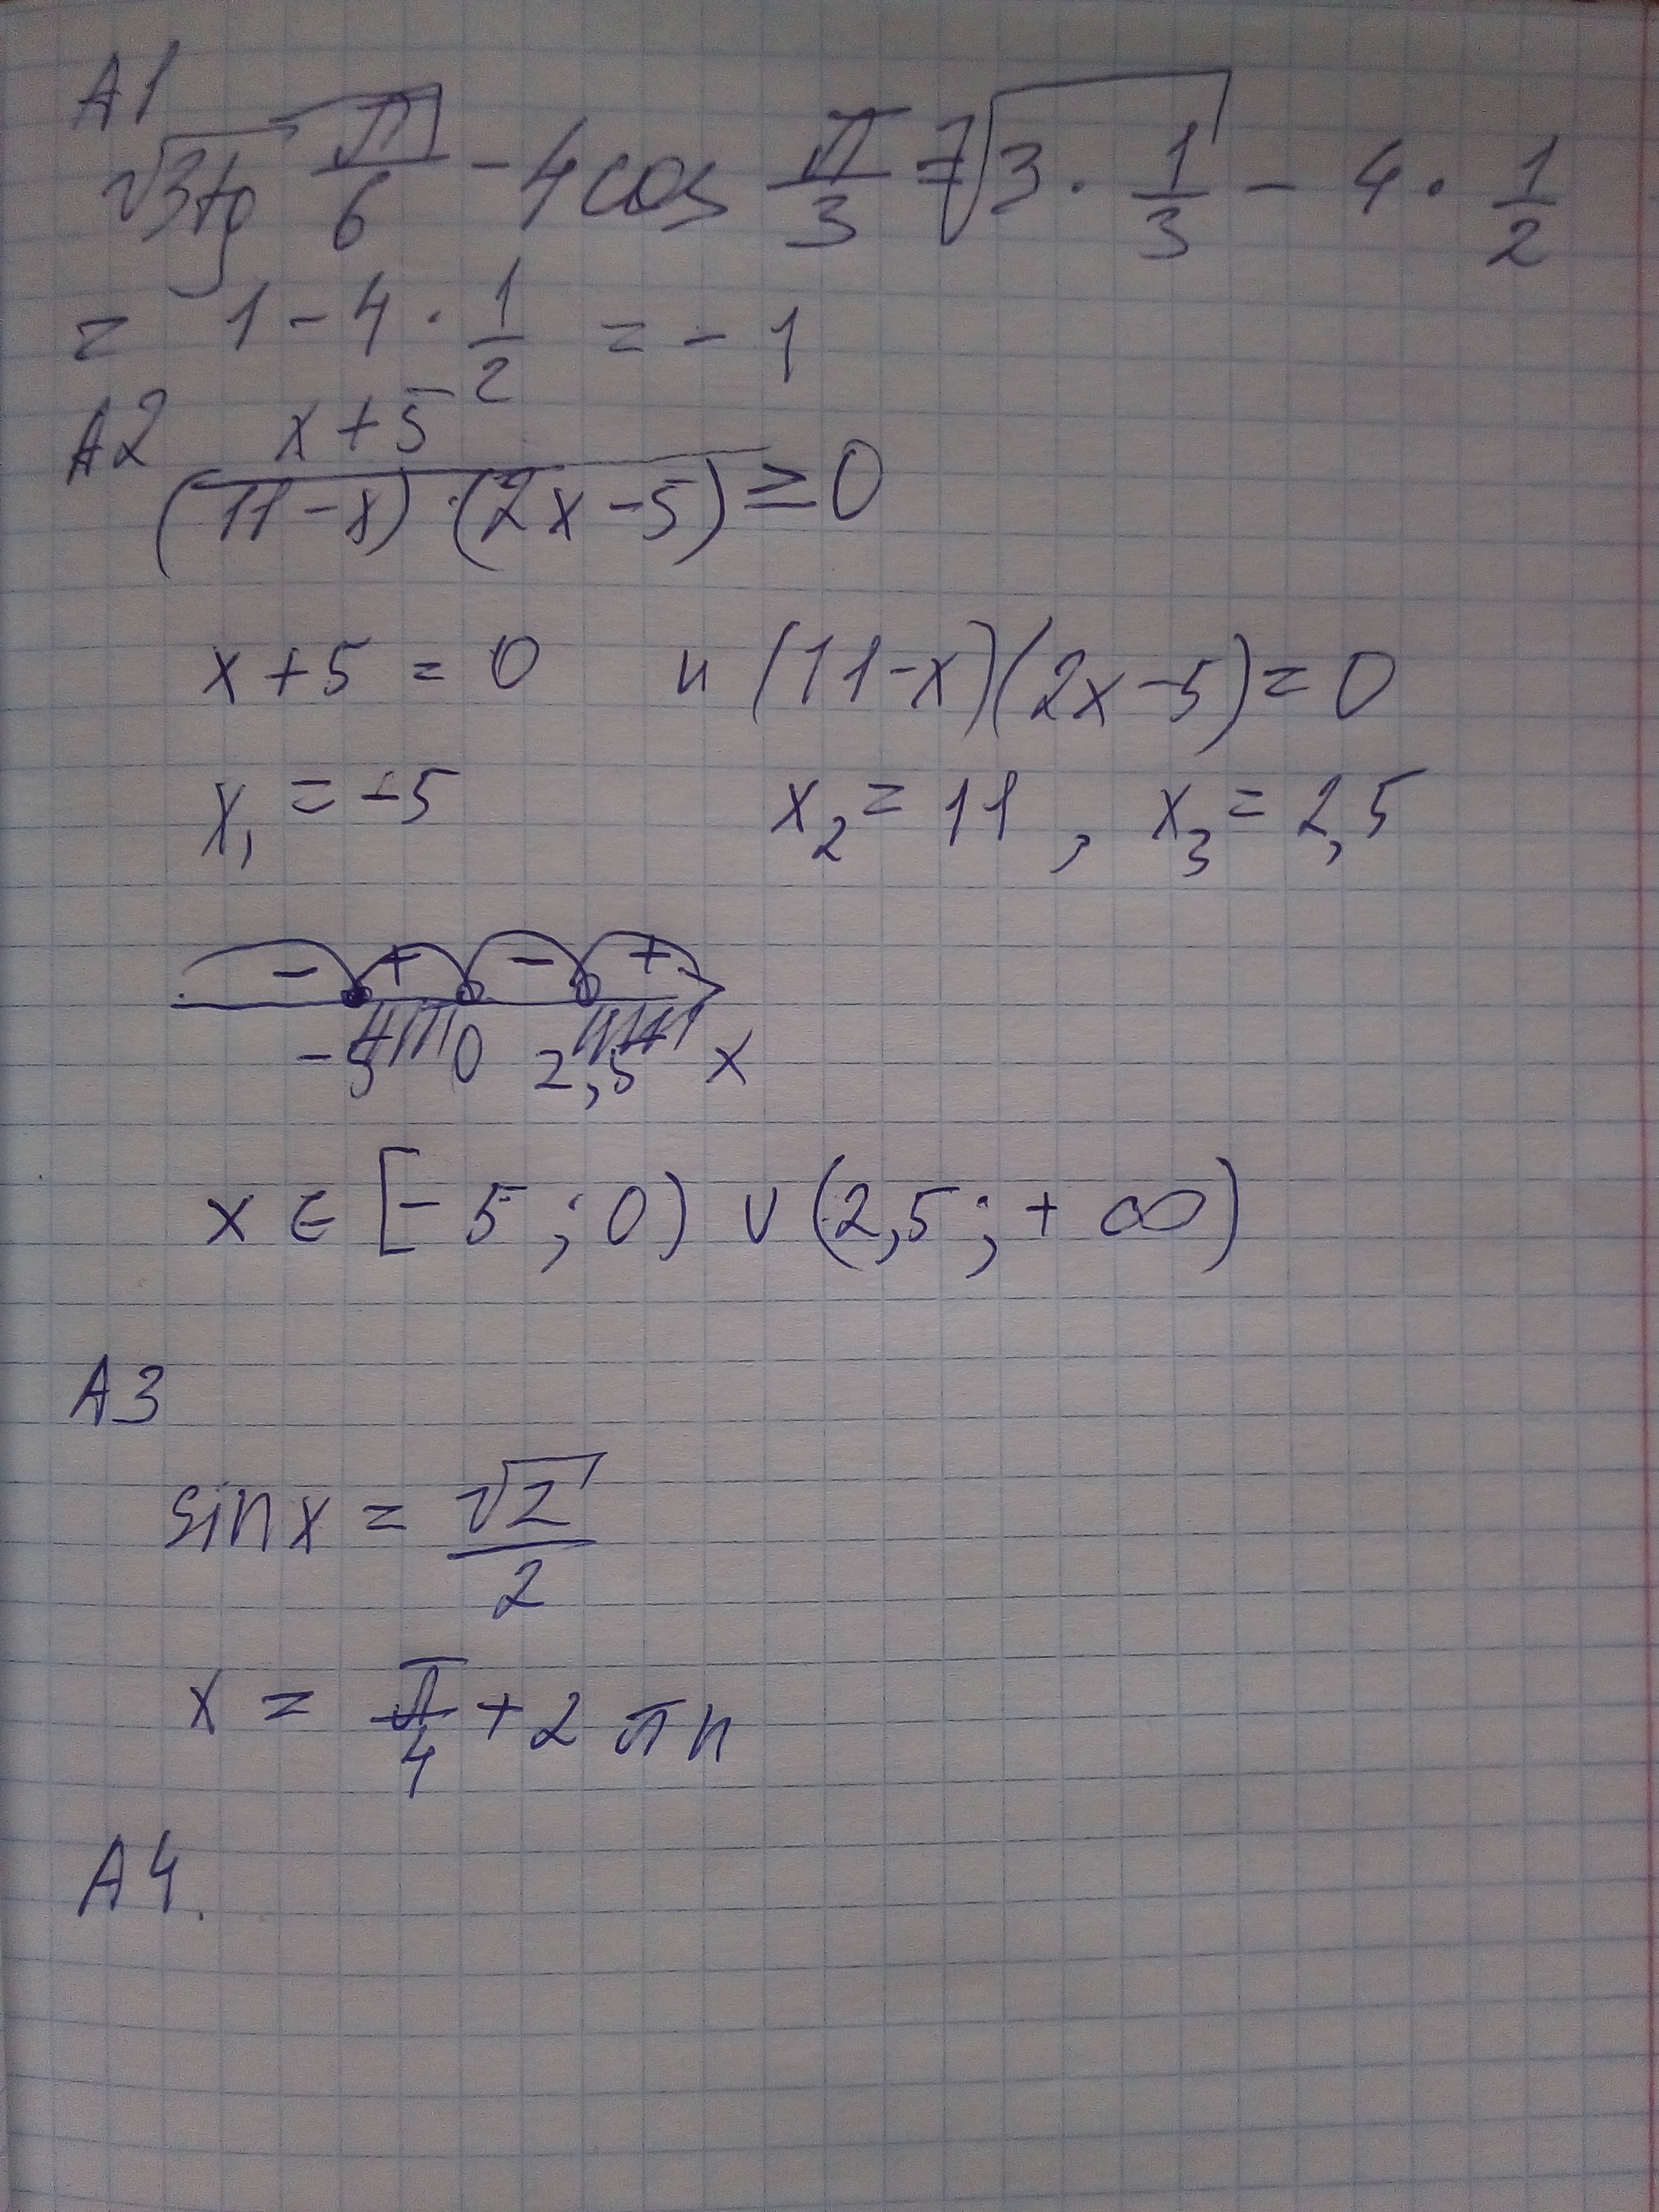 А1
√3tg π/6 - 4cos π/3 = √3 · 1/3 - 4 · 1/2
= 1 - 4 · 1/2 = - 1
А2 x+5/(11-x)·(2x-5) ≥ 0
x+5 = 0 и (11-x)(2x-5) = 0
x₁ = -5 x₂ = 11 , x₃ = 2,5
- + - +
-5 0 2,5 x
x ∈ [-5 ; 0) ∪ (2,5 ; +∞)
А3
sin x = √2/2
x = π/4 + 2πn
А4.